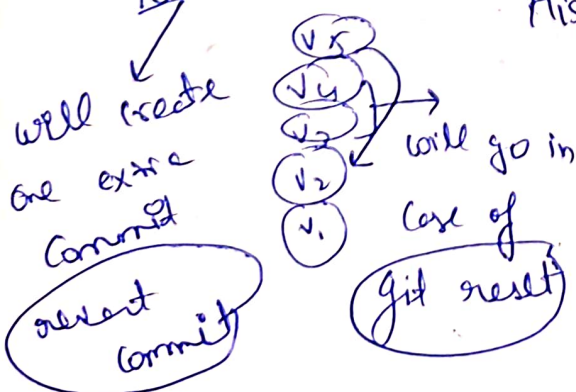 His
will create
one extra
commit
revert
commit
V5
V4
V3
V2
V1
will go in
case of
git reset